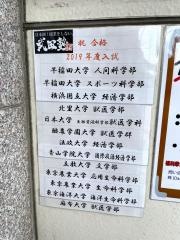 日本初！授業をしない。
武田塾
祝 合格
2019年度入試
早稲田大学 人間科学部
早稲田大学 スポーツ科学部
横浜国立大学 経済学部
北里大学 獣医学部
日本大学 生物資源科学部 獣医学科
酪農学園大学 獣医学群
法政大学 経済学部
青山学院大学
立教大学 文学部
東京農業大学 応用生物科学部
東京農業大学 生命科学部
東京海洋大学 海洋生命科学部
麻布大学 獣医学部